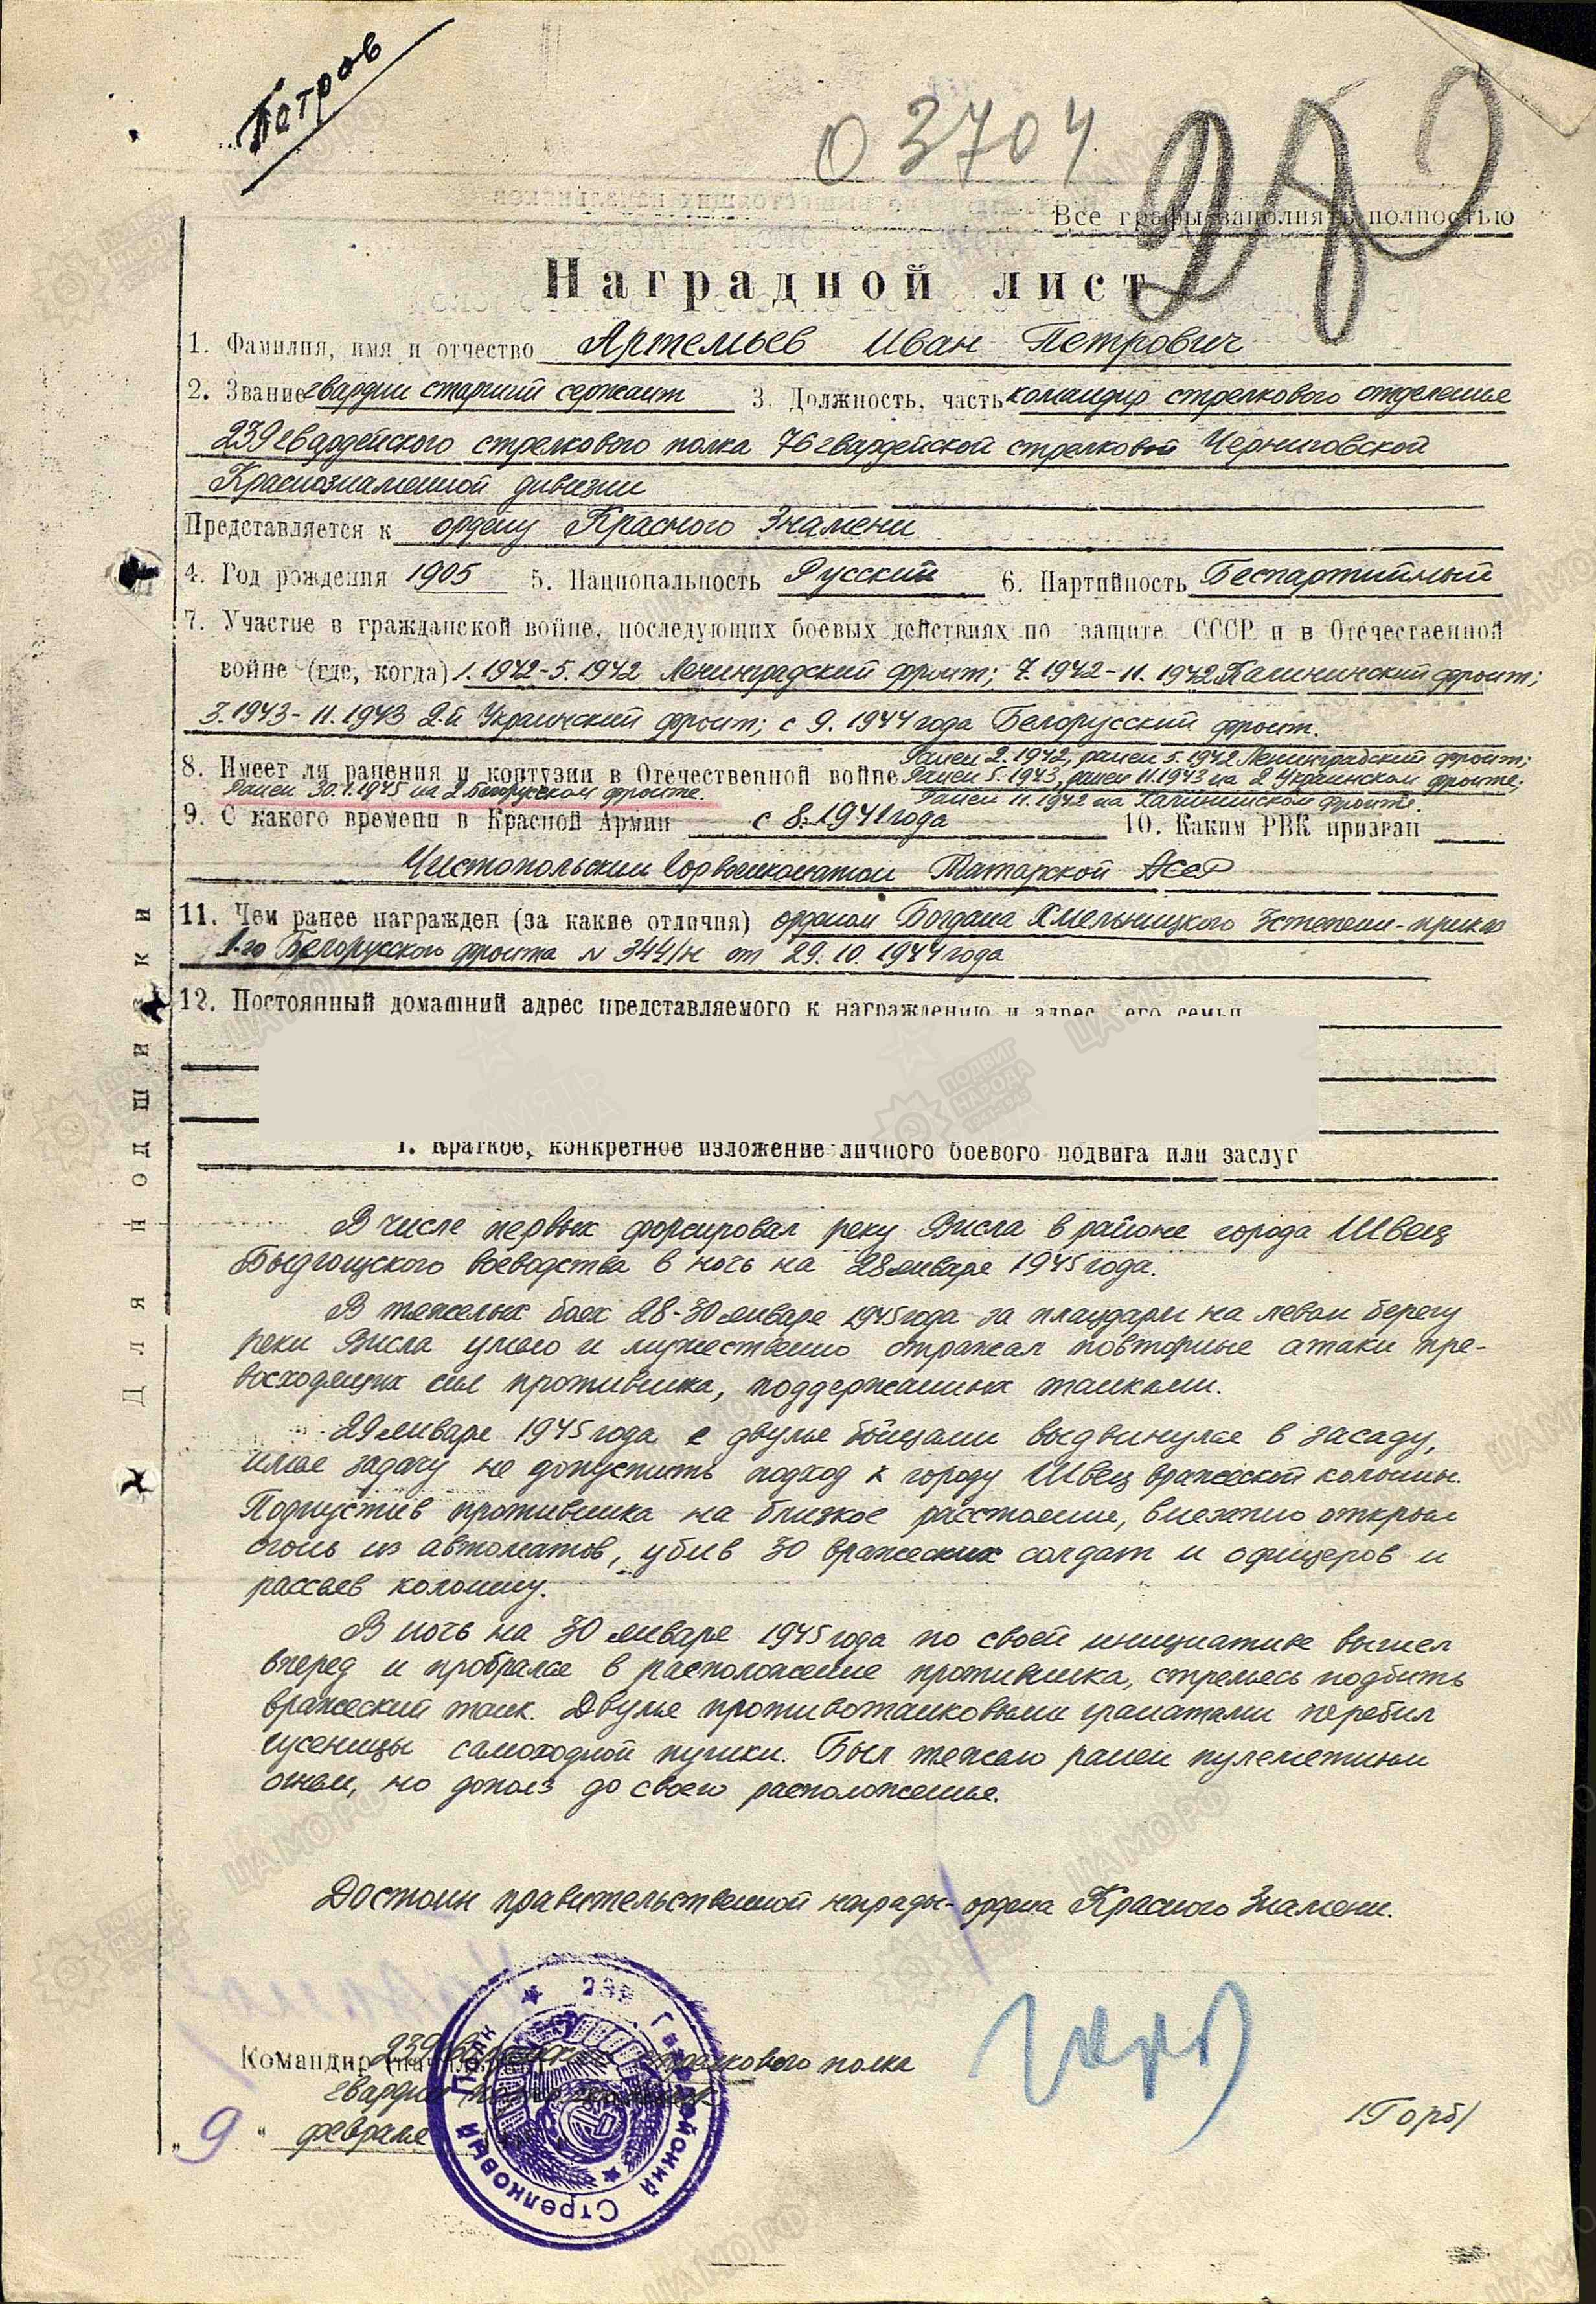 Петров
03704
Все графы заполнять полностью
Наградной лист
1. Фамилия, имя и отчество Артемьев Иван Петрович
2. Звание гвардии старший сержант 3. Должность, часть командир стрелкового отделения
239 гвардейского стрелкового полка 76 гвардейской стрелковой Черниговской
Краснознаменной дивизии
Представляется к ордену Красного Знамени
4. Год рождения 1905 5. Национальность Русский 6. Партийность Беспартийный
7. Участие в гражданской войне, последующих боевых действиях по защите СССР и в Отечественной
войне (где, когда) 1.1942-5.1942 Ленинградский фронт; 7.1942-11.1942 Калининский фронт;
3.1943-11.1943 2-й Украинский фронт; с 9.1944 года Белорусский фронт.
Ранен 2.1942, ранен 5.1942 Ленинградский фронт;
8. Имеет ли ранения и контузии в Отечественной войне Ранен 5.1943, ранен 11.1943 на 2 Украинском фронте;
Ранен 30.1.1945 на 2 Белорусском фронте. Ранен 11.1942 на Калининском фронте.
9. С какого времени в Красной Армии с 8.1941 года 10. Каким РВК призван
Чистопольским Горвоенкоматом Татарской АССР
11. Чем ранее награжден (за какие отличия) орденом Богдана Хмельницкого 3 степени - приказ
1-го Белорусского фронта N 344/н от 29.10.1944 года
12. Постоянный домашний адрес представляемого к награждению и адрес его семьи
Для подшивки
1. Краткое, конкретное изложение личного боевого подвига или заслуг
В числе первых форсировал реку Висла в районе города Швец
Быдгощского воеводства в ночь на 28 января 1945 года.
В тяжелых боях 28-30 января 1945 года за плацдарм на левом берегу
реки Висла умело и мужественно отражал повторные атаки пре-
восходящих сил противника, поддержанных танками.
29 января 1945 года с двумя бойцами выдвинулся в засаду,
имея задачу не допустить подход к городу Швец вражеской колонны.
Подпустив противника на близкое расстояние, внезапно открыл
огонь из автоматов, убив 30 вражеских солдат и офицеров и
рассеяв колонну.
В ночь на 30 января 1945 года по своей инициативе вышел
вперед и пробрался в расположение противника, стремясь подбить
вражеский танк. Двумя противотанковыми гранатами перебил
гусеницы самоходной пушки. Был тяжело ранен пулеметным
огнем, но дополз до своего расположения.
Достоин правительственной награды - ордена Красного Знамени.
Командир 239 стрелкового полка
гвардии
/Горб/
"9" февраля
239 Гвардейский Стрелковый Полк